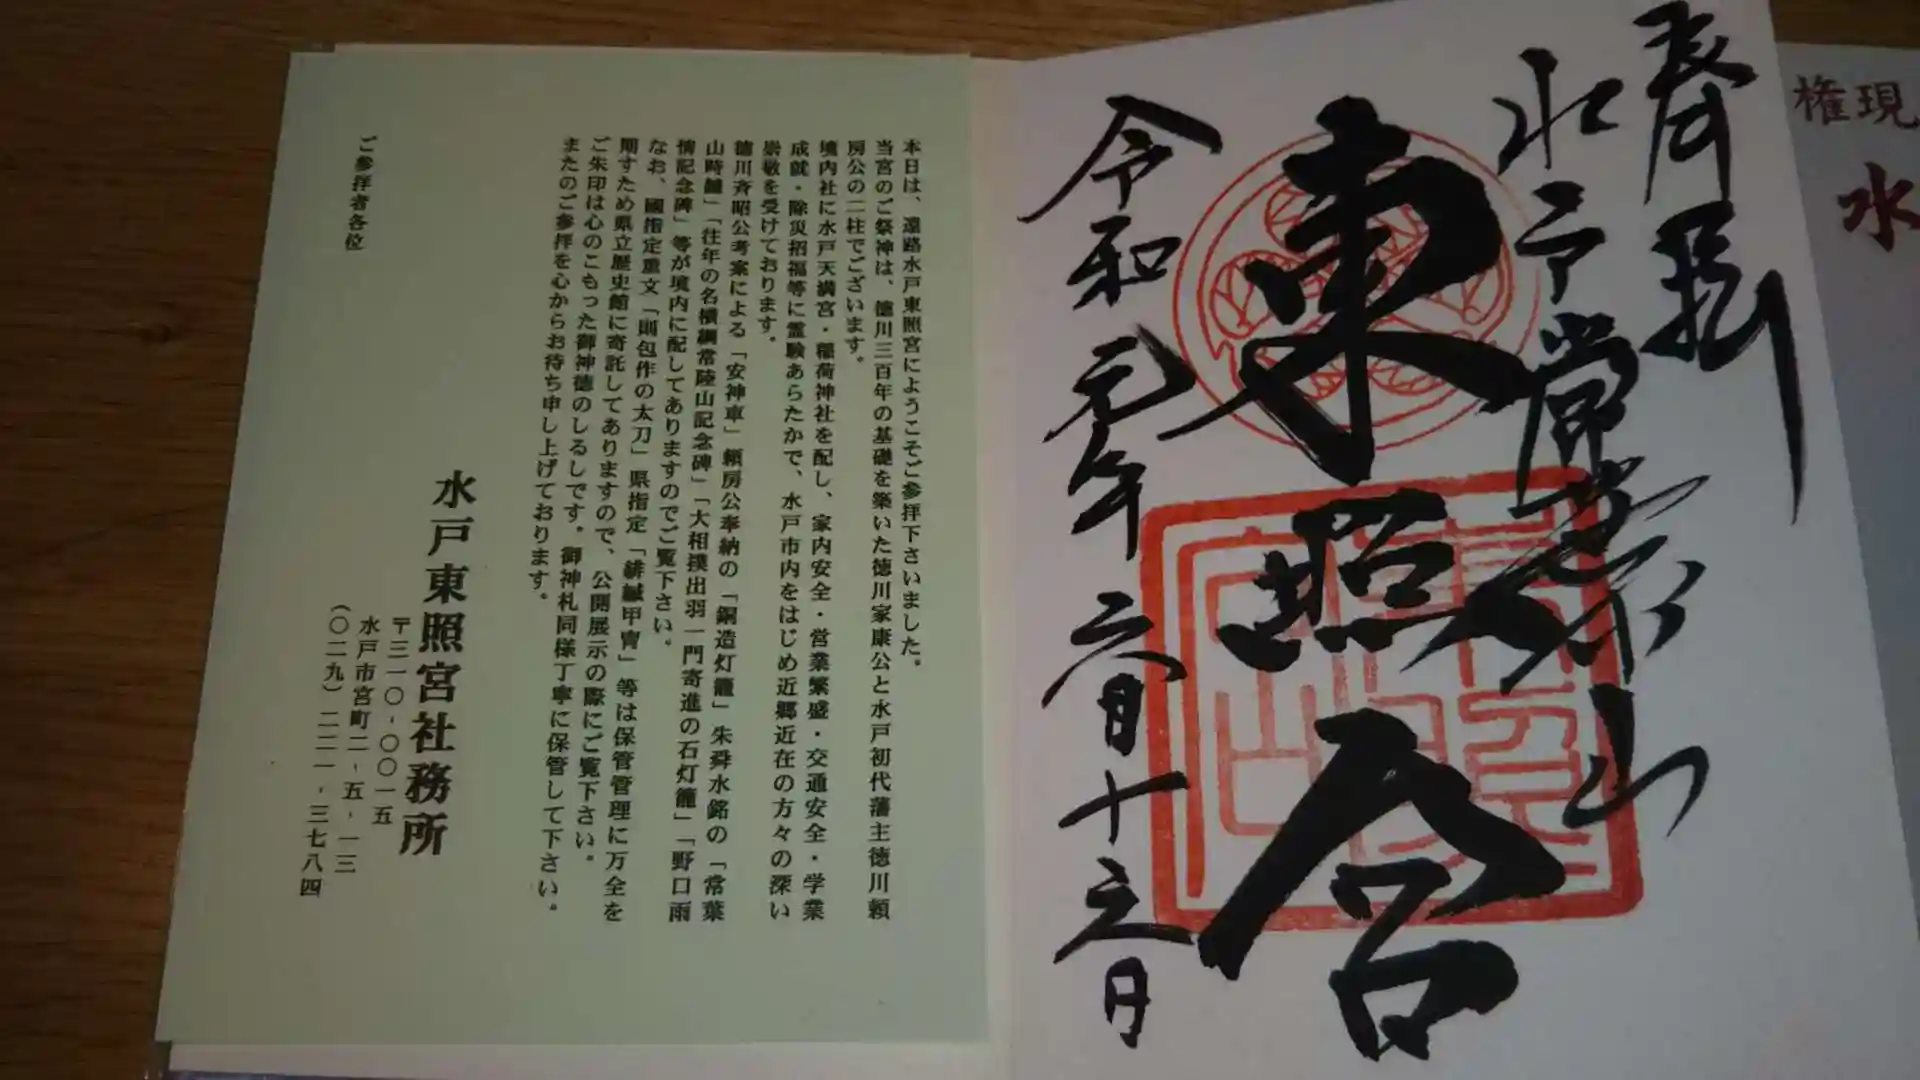 権現
水
奉拝
水戸常葉山
東照宮
令和元年六月十六日
本日は、遠路水戸東照宮にようこそご参拝下さいました。
当宮のご祭神は、徳川三百年の基礎を築いた徳川家康公と水戸初代藩主徳川頼
房公の二柱でございます。
境内社に水戸天満宮・稲荷神社を配し、家内安全・営業繁盛・交通安全・学業
成就・除災招福等に霊験あらたかで、水戸市内をはじめ近郷近在の方々の深い
崇敬を受けております。
徳川斉昭公考案による「安神車」頼房公奉納の「銅造灯籠」朱舜水銘の「常葉
山時鐘」「往年の名横綱常陸山記念碑」「大相撲出羽一門寄進の石灯籠」「野口雨
情記念碑」等が境内に配してありますのでご覧下さい。
なお、國指定重文「則包作の太刀」県指定「緋縅甲冑」等は保管管理に万全を
期すため県立歴史館に寄託してありますので、公開展示の際にご覧下さい。
ご朱印は心のこもった御神徳のしるしです。御神札同様丁寧に保管して下さい。
またのご参拝を心からお待ち申し上げております。
水戸東照宮社務所
〒三一〇-〇〇一五
水戸市宮町二-五-一三
(〇二九)二二一-三七八四
ご参拝者各位